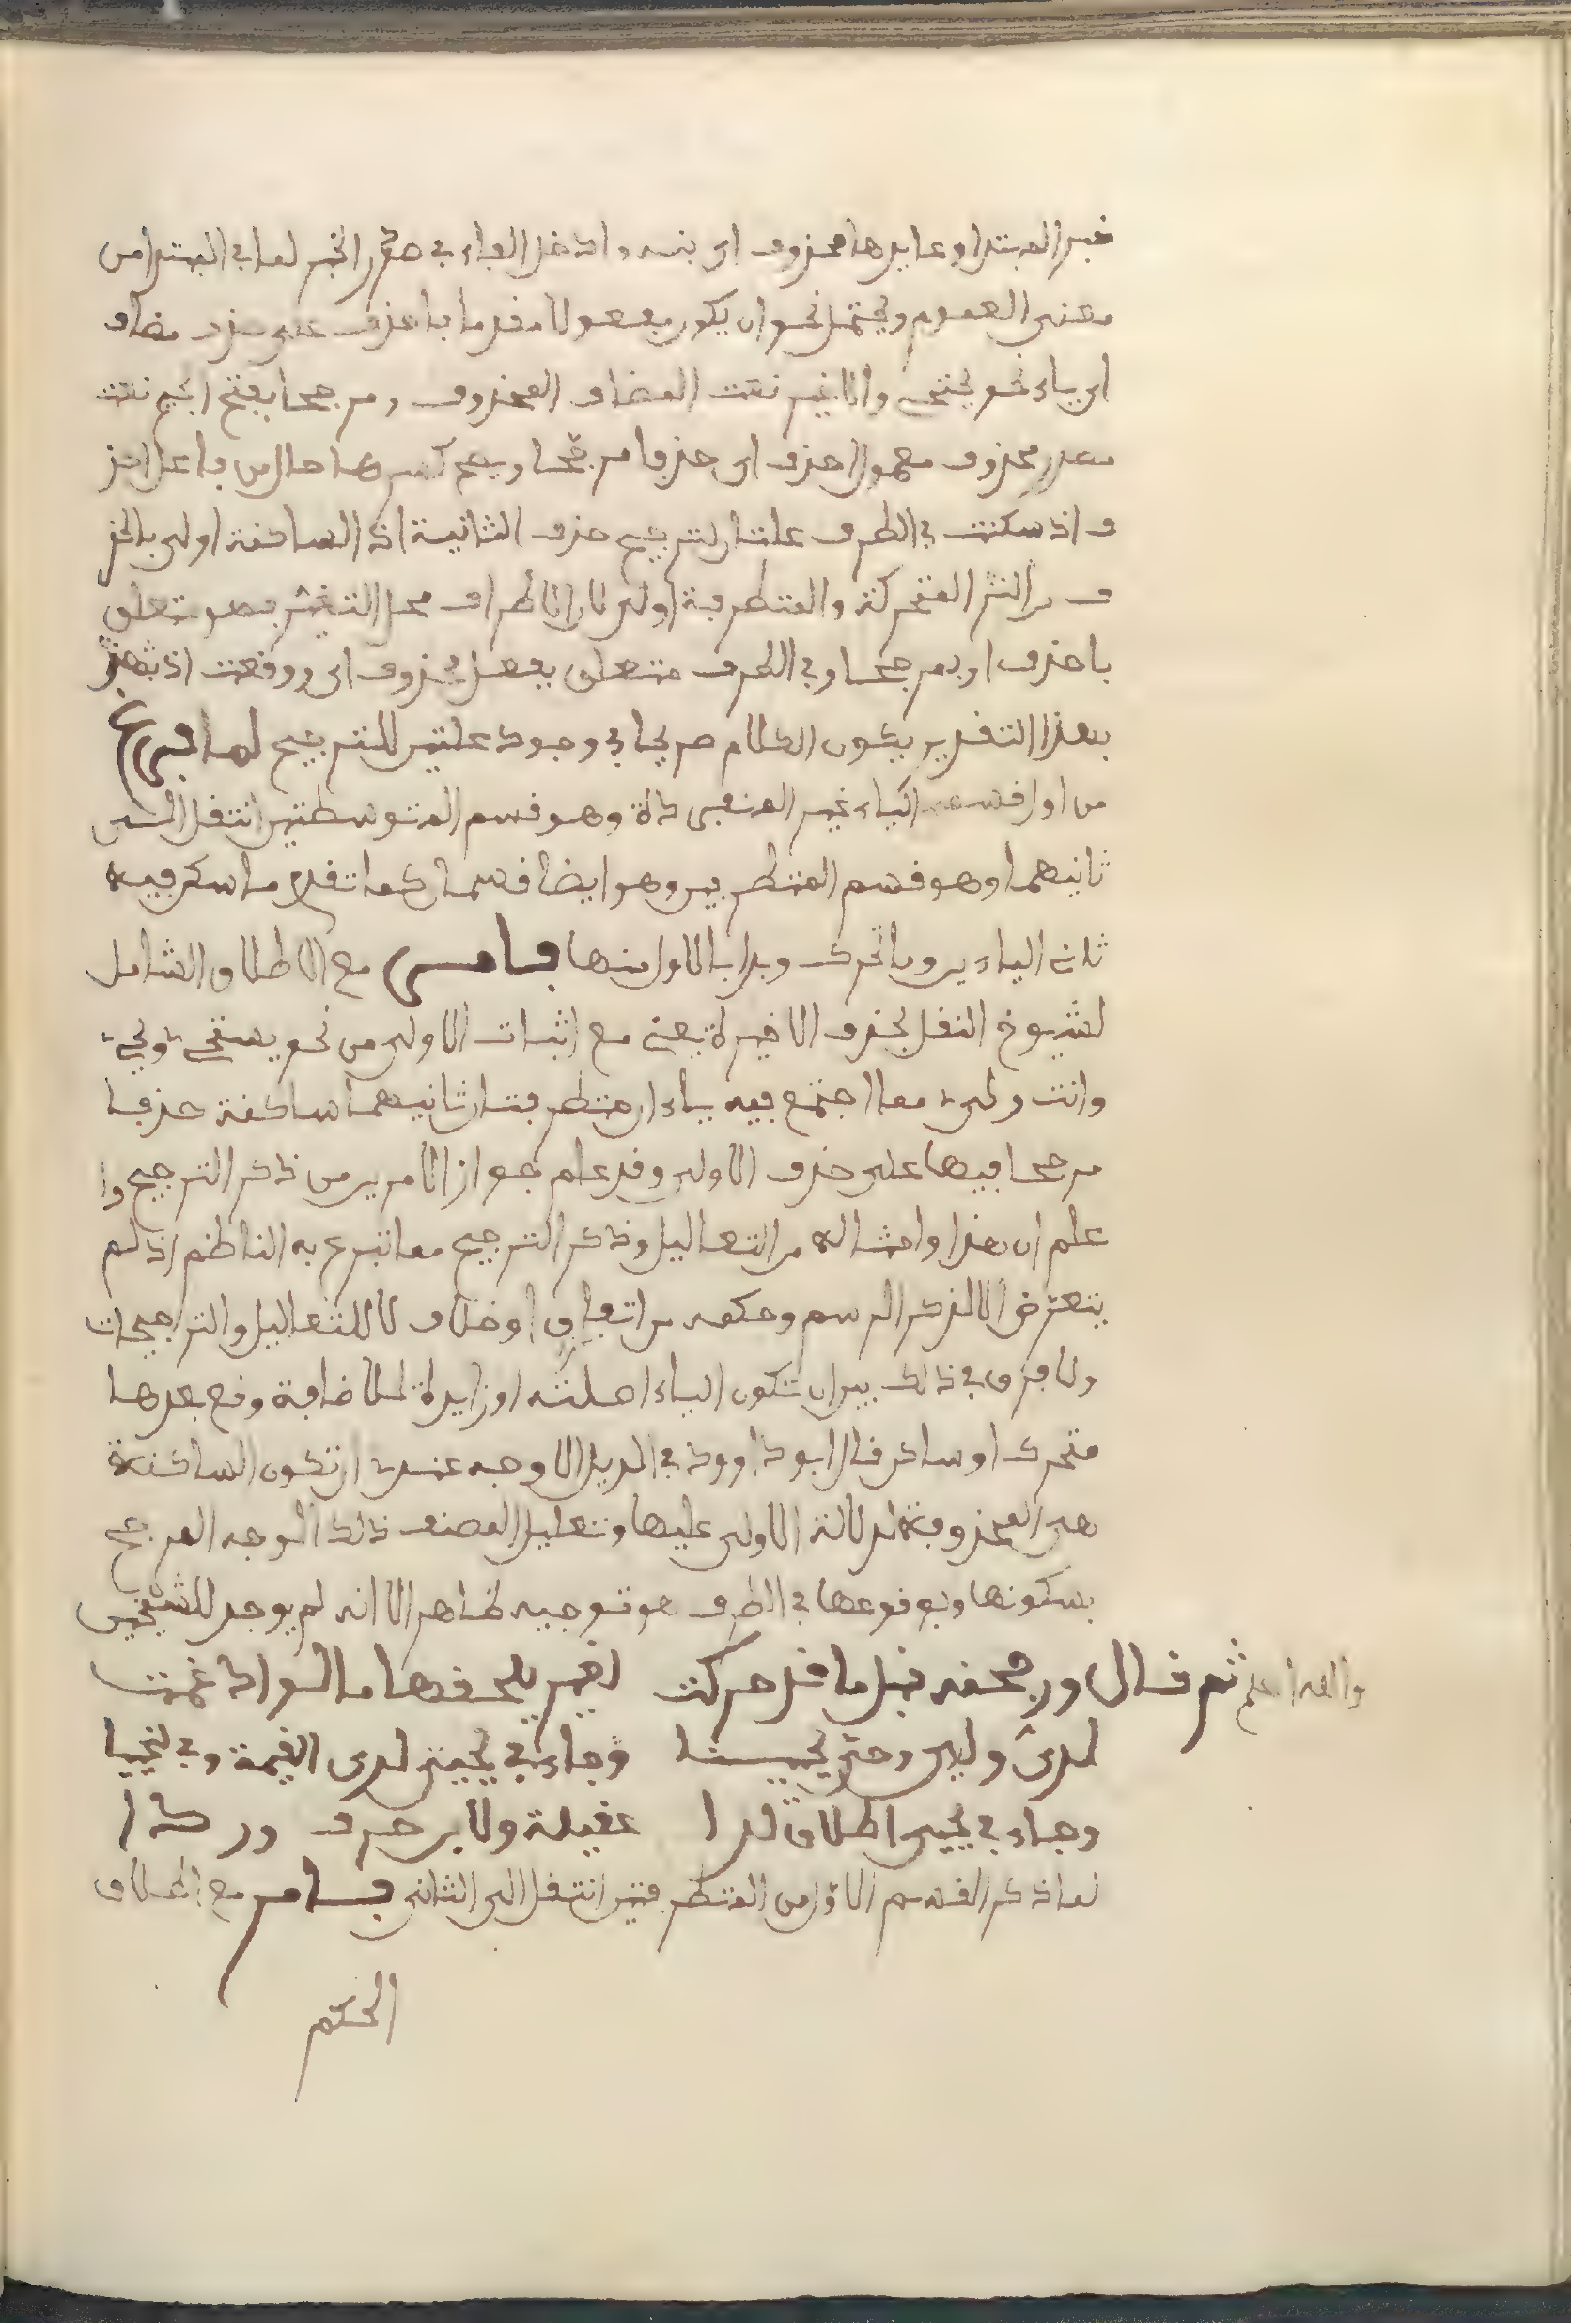 خبر المبتدا وعايدها محذوف اي بنه وادخل الفاء في صدر الخبر لما في المبتدا من
معنى العموم ويحتمل نحو ان يكون مفعولا مقدما باحذف على حذف مضاف
اي ياء نحو يحيى والاخير نعت المضاف المحذوف ومرجحا بفتح الجيم نعت
مصدر محذوف معمول احذف اي حذفا مرجحا ويصح كسرها حال من فاعل احذ
ف اذ سكنت في الطرف علتان لترجيح حذف الثانية اذ الساكنة اولى بالحذ
ف من المتحركة والمتطرفة اولى لان الاطراف محل التغيير فهو متعلق
باحذف او بمرجحا وفي الطرف متعلق بفعل محذوف اي ووقعت اذ بهذ
بهذا التقدير يكون الكلام صريحا في وجود علتين للترجيح لما فرغ
من اول قسمي الياء غير المنفردة وهو قسم المتوسطتين انتقل الى
ثانيهما وهو قسم المتطرفين وهو ايضا قسمان كما تقدم ما سكن فيه
ثاني الياءين وما تحرك وبدا بالاول منها فامر مع الاطلاق الشامل
لشيوخ النقل بحذف الاخيرة يعني مع اثبات الاولى من نحو يستحي ويحي
وانت ولي مما اجتمع فيه ياءان متطرفتان ثانيهما ساكنة حذفا
مرجحا فيها على حذف الاولى وقد علم جواز الامرين من ذكر الترجيح وا
علم ان هذا وامثاله من التعاليل وذكر الترجيح مما تبرع به الناظم اذ لم
يتعرض الا لذكر الرسم وحكمه من اتفاق او خلاف لا للتعاليل والترجيحات
ولا فرق في ذلك بين ان تكون الياء اصلية او زايدة للاضافة وقع بعدها
متحرك او ساكن قال ابو داوود في الذيل الاوجه عندي ان تكون الساكنة
هي المحذوفة لدلالة الاولى عليها وتعليل المصنف ذلك الوجه المرجح
بسكونها وبوقوعها في الطرف هو توجيه ظاهر الا انه لم يوجد للشيخين
والله اعلم ثم قال ورجحنه قبل ما قد حركت اخير يلحقها ما لو اذ غمت
لدى وليي وحتى يحيينا وجاء في يحيي لدى القيمة وفي لنحييا
وجاء في يحيي اطلاق لدا عقيلة ولابن حرف وردا
لما ذكر القسم الاول من المتطرفتين انتقل الى الثاني فامر مع اطلاق
الحكم